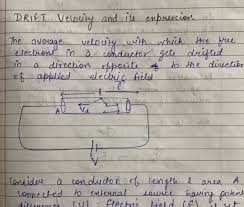 DRIFT Velocity and its expression
The average velocity with which the free
electrons in a conductor gets drifted
in a direction opposite to the direction
of applied electric field
l
A
Vd
Consider a conductor of length l area A
connected to external source having potential
difference (V). Electric field (E) is set